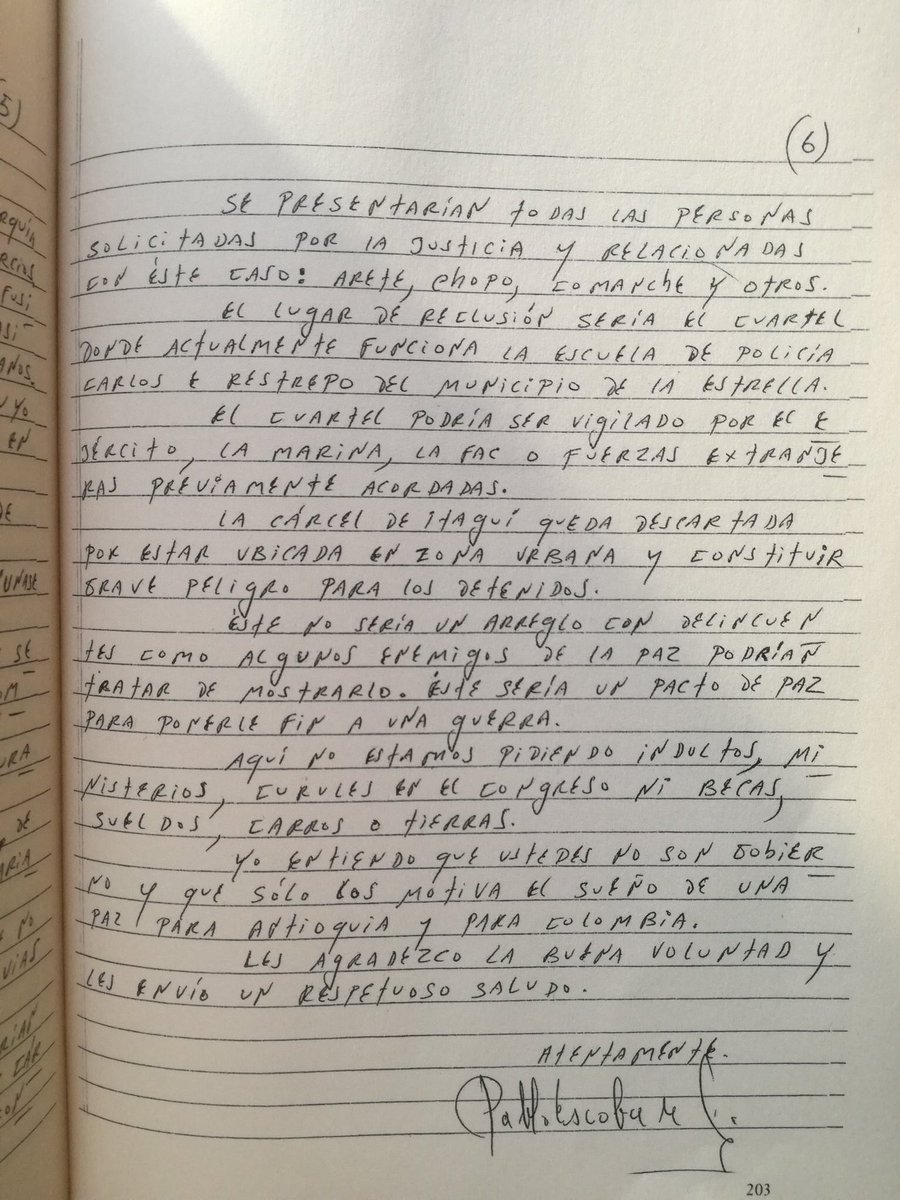 5)
(6)
SE PRESENTARÍAN TODAS LAS PERSONAS
SOLICITADAS POR LA JUSTICIA Y RELACIONADAS
CON ÉSTE CASO: ARETE, CHOPO, COMANCHE Y OTROS.
EL LUGAR DE RECLUSIÓN SERÍA EL CUARTEL
DONDE ACTUALMENTE FUNCIONA LA ESCUELA DE POLICÍA
CARLOS E RESTREPO DEL MUNICIPIO DE LA ESTRELLA.
EL CUARTEL PODRÍA SER VIGILADO POR EL E
JÉRCITO, LA MARINA, LA FAC O FUERZAS EXTRANJE
RAS PREVIAMENTE ACORDADAS.
LA CÁRCEL DE ITAGUÍ QUEDA DESCARTADA
POR ESTAR UBICADA EN ZONA URBANA Y CONSTITUIR
GRAVE PELIGRO PARA LOS DETENIDOS.
ÉSTE NO SERÍA UN ARREGLO CON DELINCUEN
TES COMO ALGUNOS ENEMIGOS DE LA PAZ PODRÍAN
TRATAR DE MOSTRARLO. ÉSTE SERÍA UN PACTO DE PAZ
PARA PONERLE FIN A UNA GUERRA.
AQUÍ NO ESTAMOS PIDIENDO INDULTOS, MI
NISTERIOS, CURULES EN EL CONGRESO NI BECAS,
SUELDOS, CARROS O TIERRAS.
YO ENTIENDO QUE USTEDES NO SON GOBIER
NO Y QUE SÓLO LOS MOTIVA EL SUEÑO DE UNA
PAZ PARA ANTIOQUIA Y PARA COLOMBIA.
LES AGRADEZCO LA BUENA VOLUNTAD Y
LES ENVÍO UN RESPETUOSO SALUDO.
ATENTAMENTE.
Pablo Escobar
203